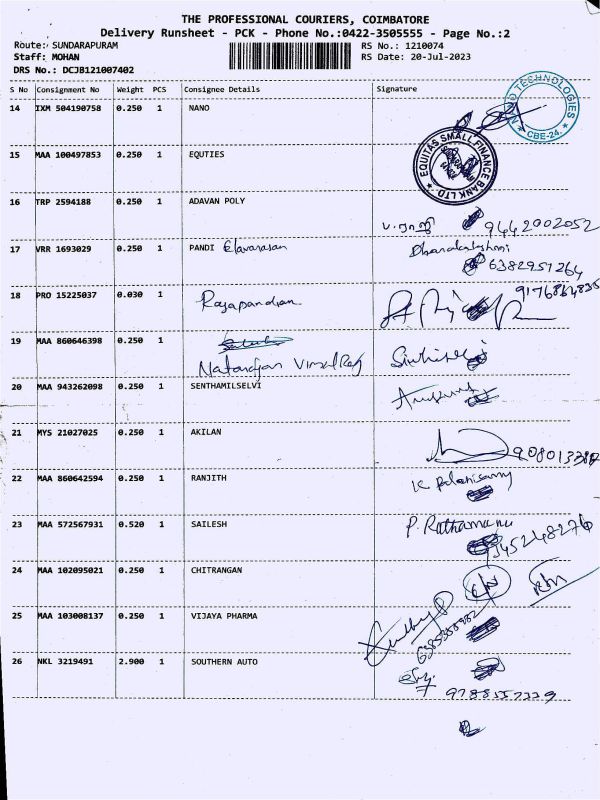 THE PROFESSIONAL COURIERS, COIMBATORE
Delivery Runsheet - PCK - Phone No.:0422-3505555 - Page No.:2
Route: SUNDARAPURAM RS No.: 1210074
Staff: MOHAN RS Date: 20-Jul-2023
DRS No.: DCJB121007402
S No Consignment No Weight PCS Consignee Details Signature
14 IXM 504190758 0.250 1 NANO
NANO TECHNOLOGIES
CBE-24.
15 MAA 100497853 0.250 1 EQUTIES
EQUITAS SMALL FINANCE BANK LTD
16 TRP 2594188 0.250 1 ADAVAN POLY
9442002052
17 VRR 1693029 0.250 1 PANDI Elavarasan Dhanalakshmi
6382957264
18 PRO 15225037 0.030 1 Rajapandian
19 MAA 860646398 0.250 1
Natarajan VimalRaj
20 MAA 943262098 0.250 1 SENTHAMILSELVI
21 MYS 21027025 0.250 1 AKILAN
22 MAA 860642594 0.250 1 RANJITH K Palanisamy
23 MAA 572567931 0.520 1 SAILESH P. Rathamani
24 MAA 102095021 0.250 1 CHITRANGAN
25 MAA 103008137 0.250 1 VIJAYA PHARMA
26 NKL 3219491 2.900 1 SOUTHERN AUTO